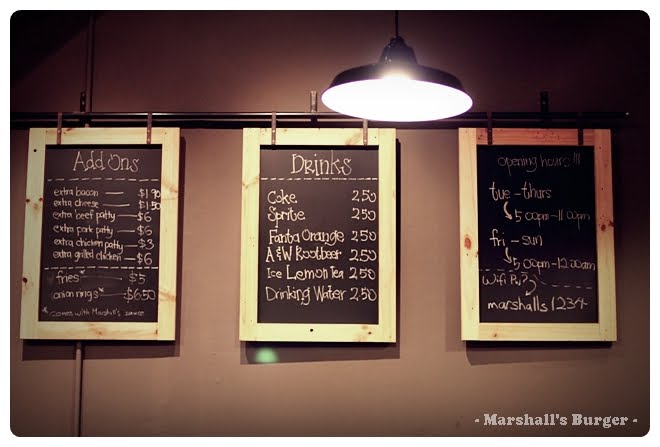 Add Ons
extra bacon — $1.90
extra cheese — $1.50
extra beef patty — $6
extra pork patty — $6
extra chicken patty — $3
extra grilled chicken — $6
fries — $5
onion rings* — $6.50
* comes with Marshall's sauce
Drinks
Coke 2.50
Sprite 2.50
Fanta Orange 2.50
A&W Rootbeer 2.50
Ice Lemon Tea 2.50
Drinking Water 2.50
opening hours !!!
tue - thurs
5:00pm - 11:00pm
fri - sun
5:00pm - 12:00am
marshalls1234
- Marshall's Burger -